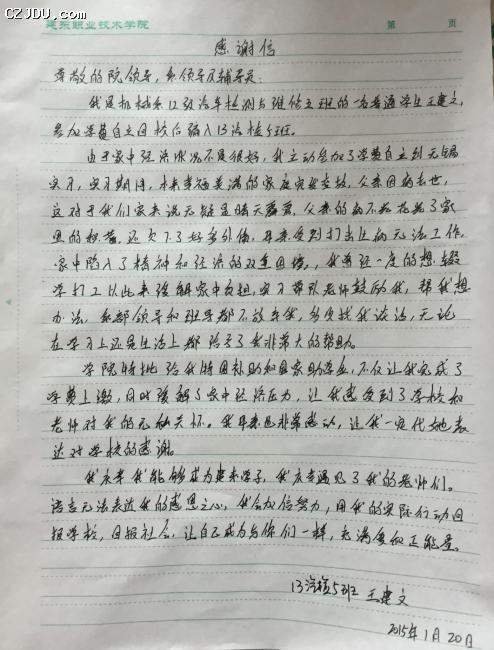 CZJDU.com
建东职业技术学院 第 页
感谢信
尊敬的院领导,系领导及辅导员:
我是机械系12级汽车检测与维修五班的一名普通学生王建文,
参加学费自立回校后编入13汽检5班。
由于家中经济状况不是很好,我主动参加了学费自立到无锡
实习,实习期间,本来幸福美满的家庭突发变故,父亲因病去世,
这对于我们家来说无疑是晴天霹雳,父亲的病不光花光了家
里的积蓄,还欠下了好多外债,母亲受到打击让病无法工作,
家中陷入了精神和经济的双重困境,我曾经一度的想辍
学打工以此来缓解家中负担,实习带队老师鼓励我,帮我想
办法,系部领导和班导都不放弃我,多次找我谈话,无论
在学习上还是生活上都给予了我非常大的帮助。
学院特批给我特困补助和国家助学金,不仅让我完成了
学费上缴,同时缓解了家中经济压力,让我感受到了学校和
老师对我的无私关怀。我母亲也非常感动,让我一定代她表
达对学校的感谢。
我庆幸我能够成为建东学子,我庆幸遇见了我的老师们。
语言无法表达我的感恩之心,我会加倍努力,用我的实际行动回
报学校,回报社会,让自己成为与你们一样,充满爱和正能量。
13汽检5班 王建文
2015年1月20日